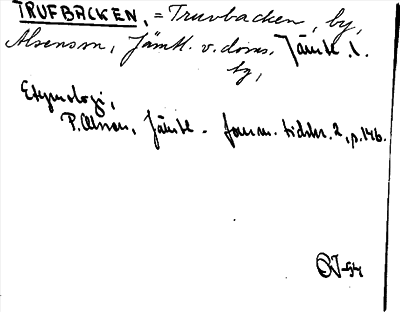 TRUFBACKEN, = Truvbacken, by,
Alsens sn, Jämtl. v. doms. Jämtl. l.
by,
Etymologi,
P. Olsson, Jämtl. fornm. tidskr. 2, p. 146.